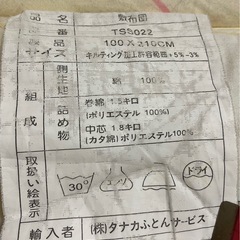 品名 敷布団
品番 TSS022
製品サイズ 100×210CM
キルティング加上許容範囲+5%-3%
組成 側生地 綿 100%
詰め物 巻綿 1.5キロ
(ポリエステル 100%)
中芯 1.8キロ
(カタ綿)ポリエステル100%
取扱い絵表示 30° エンソ ドライ
輸入者 (株)タナカふとんサービス